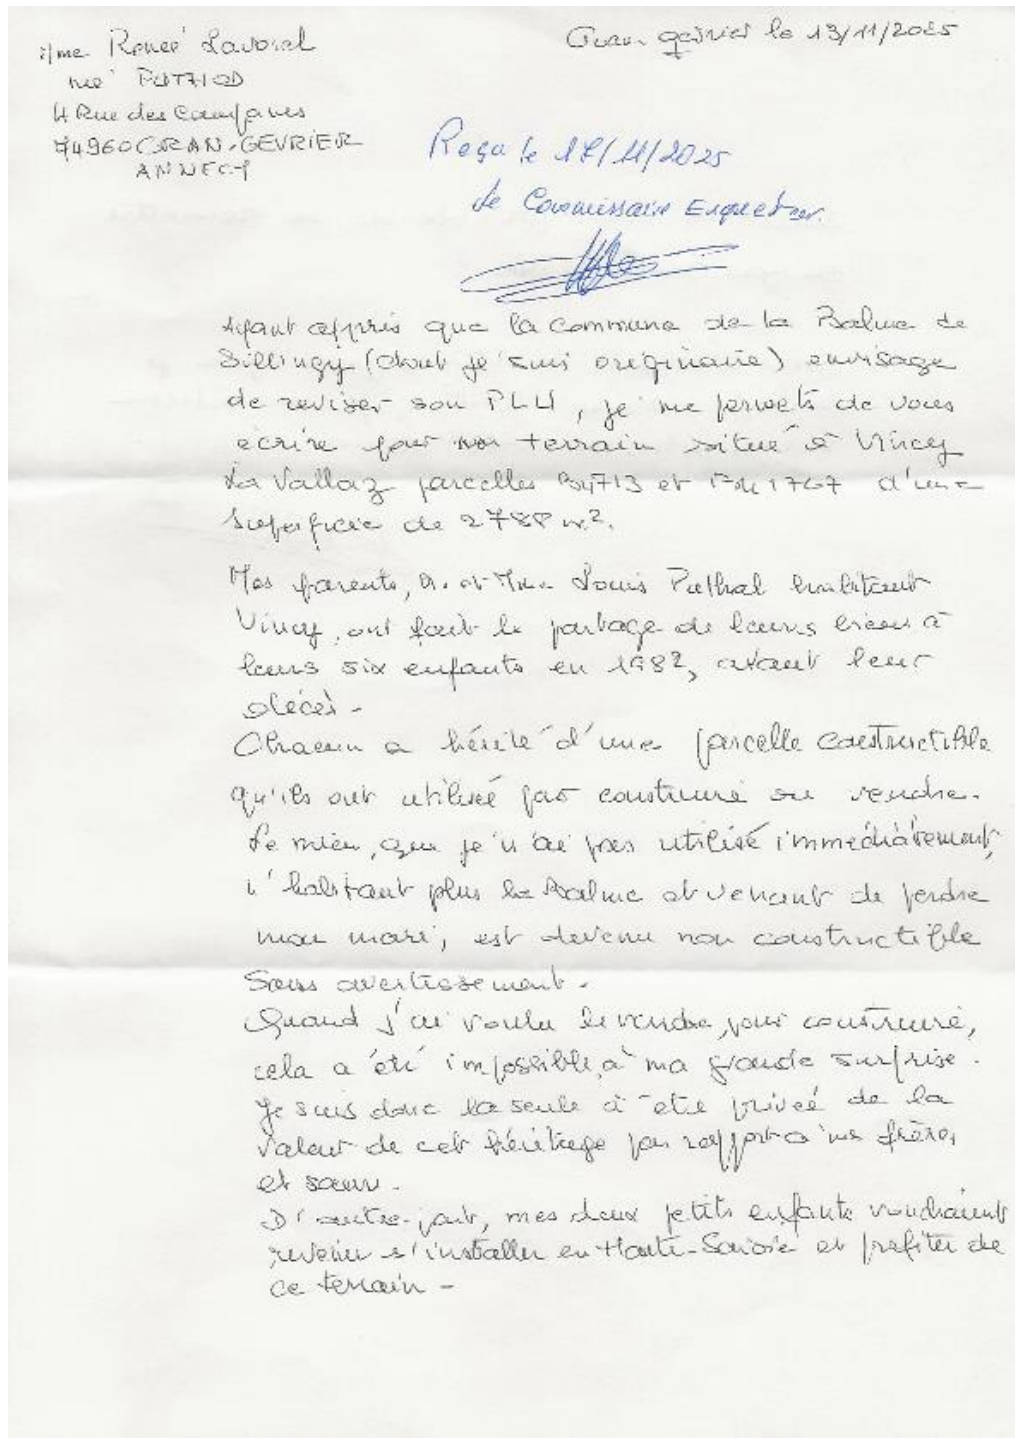 Mme Renée Lavorel
née
4 Rue des
74960 CRAN-GEVRIER
ANNECY
Cran gevrier le 13/11/2025
Reçu le 18/11/2025
Le Commissaire Enquêteur.
Ayant appris que la commune de la Balme de
Sillingy (dont je suis originaire) envisage
de reviser son PLU, je me permets de vous
écrire pour mon terrain situé à Vincy
La Vallaz parcelles et 1767 d'une
superficie de 2788 m².
Mes parents, M. et Mme Louis habitant
Vincy, ont fait le partage de leurs biens à
leurs six enfants en 1982, avant leur
décès -
Chacun a hérité d'une parcelle constructible
qu'ils ont utilisé pour construire ou vendre.
Le mien, que je n'ai pas utilisé immédiatement,
n'habitant plus la Balme et venant de perdre
mon mari, est devenu non constructible
sans avertissement.
Quand j'ai voulu le vendre, pour construire,
cela a été impossible, à ma grande surprise.
Je suis donc la seule à être privée de la
valeur de cet héritage par rapport à mes frères
et sœurs.
D'autre-part, mes deux petits enfants voudraient
revenir s'installer en Haute-Savoie et profiter de
ce terrain -